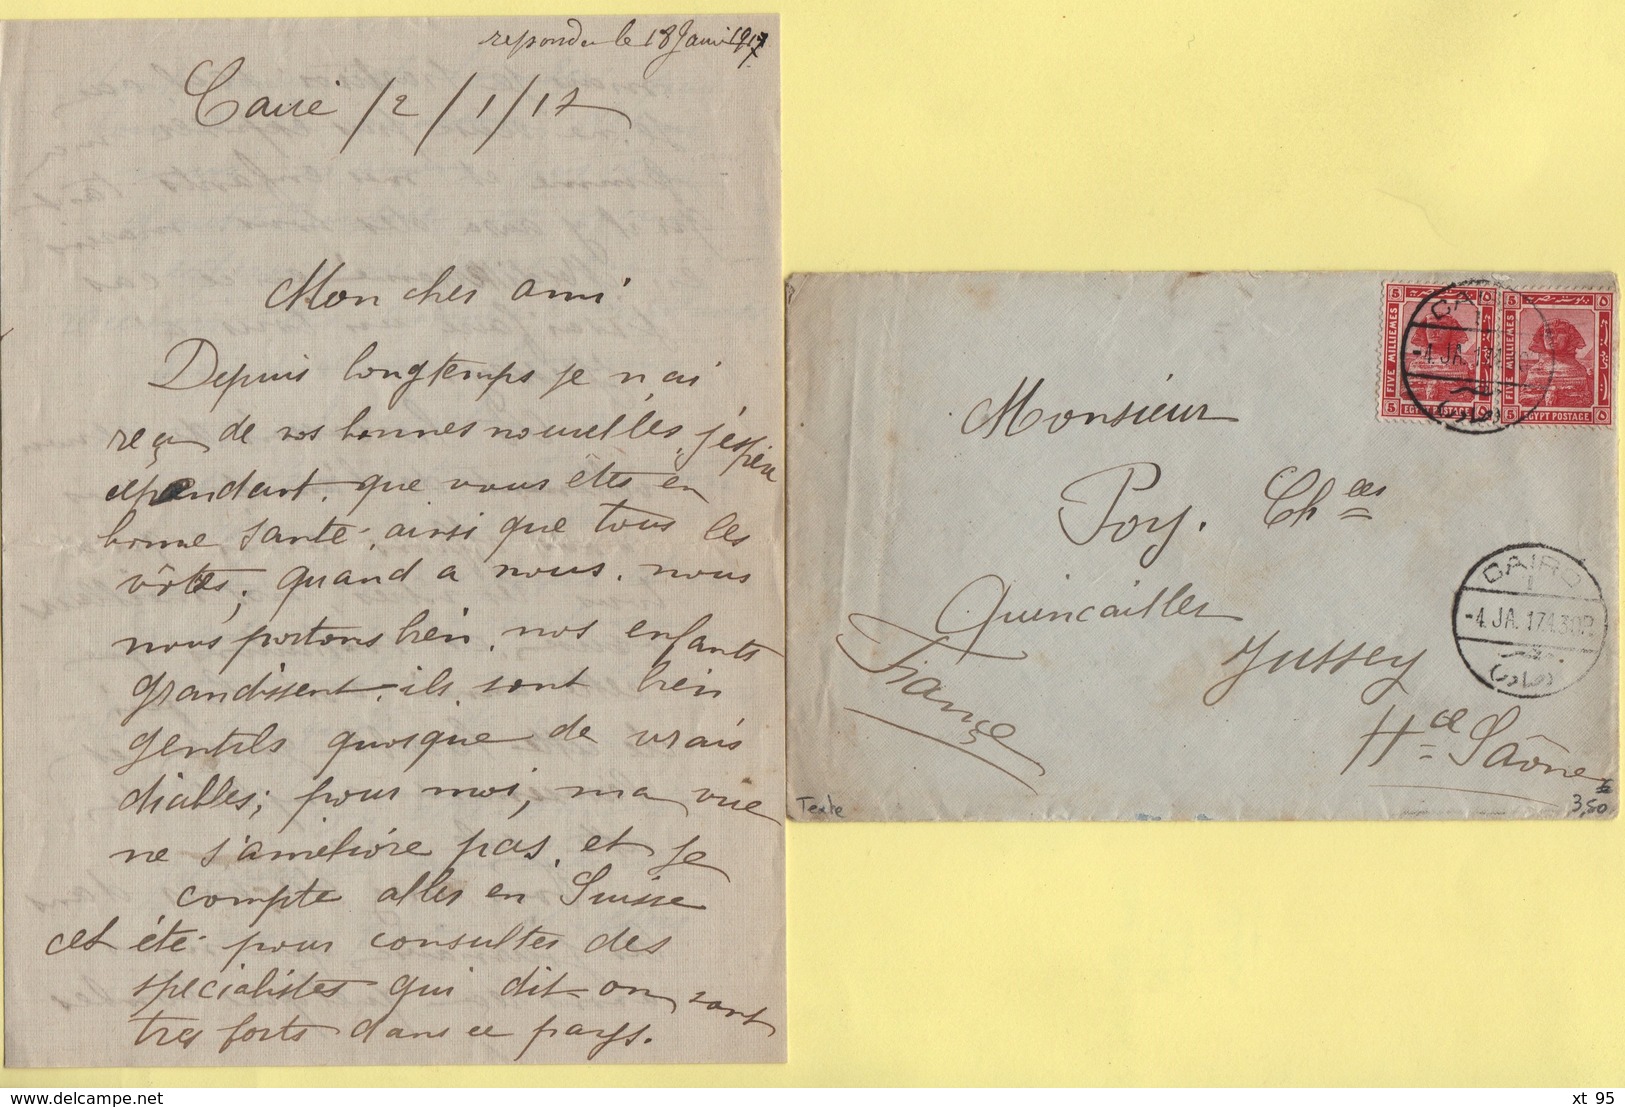 repondu le 18 Janvi 1917
Caire /2/1/17
Mon cher ami
Depuis longtemps je n'ai
reçu de vos bonnes nouvelles, j'espère
cependant, que vous êtes en
bonne santé, ainsi que tous les
vôtres; quand a nous, nous
nous portons bien, nos enfants
grandissent, ils sont bien
gentils quoique de vrais
diables; pour moi, ma vue
ne s'améliore pas, et je
compte aller en Suisse
cet été pour consulter des
spécialistes qui dit-on sont
tres forts dans ce pays.
5 ٥
FIVE MILLIEMES
5 EGYPT POSTAGE ٥
5 ٥
FIVE MILLIEMES
5 EGYPT POSTAGE ٥
CAI
-4.JA.17
Monsieur
Poy. Ch les
Quincailler
Jussey
Hte Saône
France
CAIRO
1
-4.JA.17.4.30P
Texte
3,50
xt 95